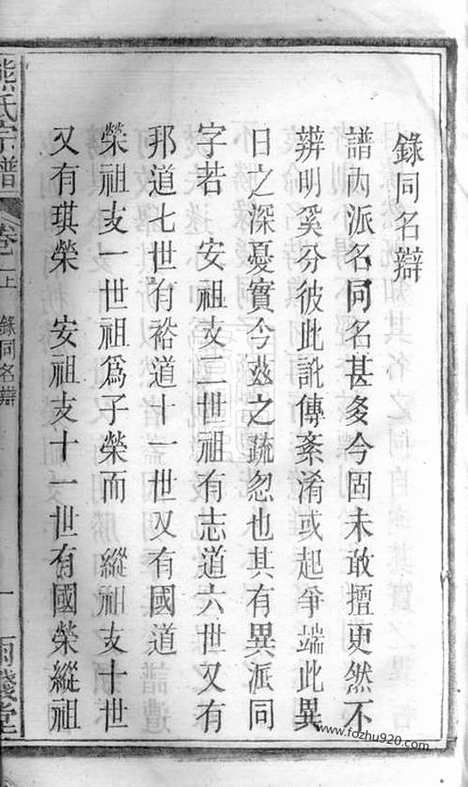 錄同名辯
譜內派名同名甚多今固未敢擅更然不
辨明奚分彼此訛傳紊淆或起爭端此異
日之深憂實今茲之疏忽也其有異派同
字若 安祖支二世祖有志道六世又有
邦道七世有裕道十一世又有國道
榮祖支一世祖爲子榮而 縱祖支十世
又有琪榮 安祖支十一世有國榮縱祖
熊氏宗譜
卷一上 錄同名辯 一
www.fozhu920.com